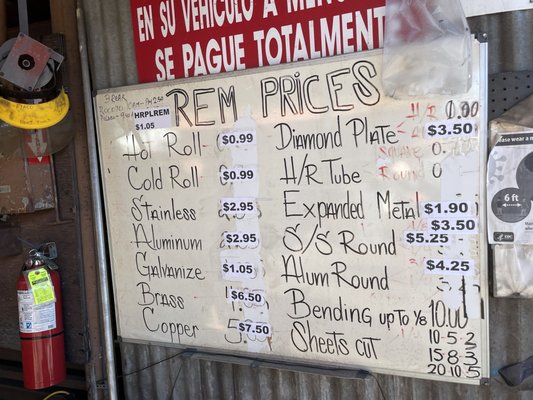 EN SU VEHICULO A MEN
SE PAGUE TOTALMENT
REM PRICES
HRPLREM
$1.05
Hot Roll- $0.99
Cold Roll- $0.99
Stainless $2.95
Aluminum $2.95
Galvanize $1.05
Brass $6.50
Copper $7.50
Diamond Plate $3.50
H/R Tube
Square 0
Round 0
Expanded Metal $1.90
$3.50
S/S Round $5.25
Alum Round $4.25
Bending up To 1/8 10.00
Sheets cut 10-5-2
15-8-3
20 10.5
wear a
6 ft